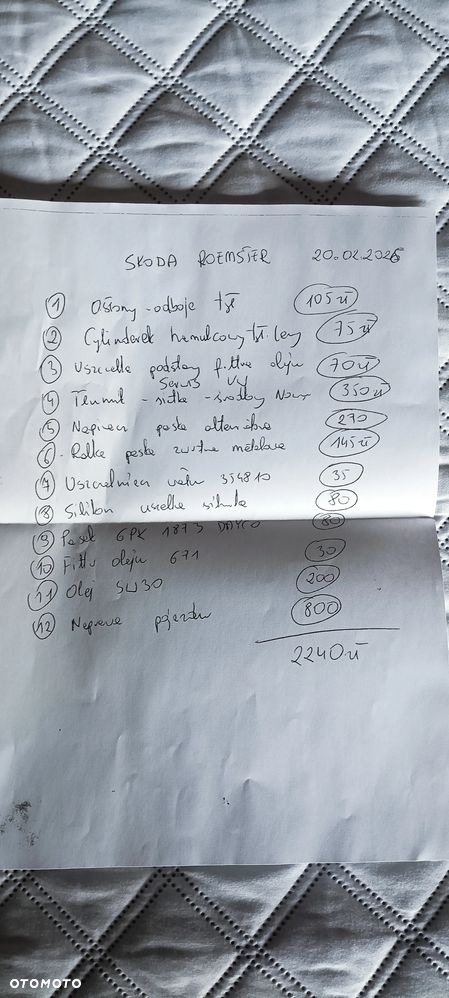 SKODA ROEMSTER 20.02.2026
1 Osłony - odboje tył 105 zł
2 Cylinderek hamulcowy tył. lewy 75 zł
3 Uszczelka podstawy filtra oleju 70 zł
Serwis
4 Tłumik - siatka - środkowy Nowy 350 zł
5 Napinacz paska alternatora 270
6 - Rolka paska zwrotna metalowa 145 zł
7 Uszczelniacz wału 354810 35
8 Silikon uszczelka silnika 80
9 Pasek 6PK 1873 DAYCO 80
10 Filtr oleju 671 30
11 Olej 5W30 200
12 Naprawa pojazdu 800
2240 zł
OTOMOTO